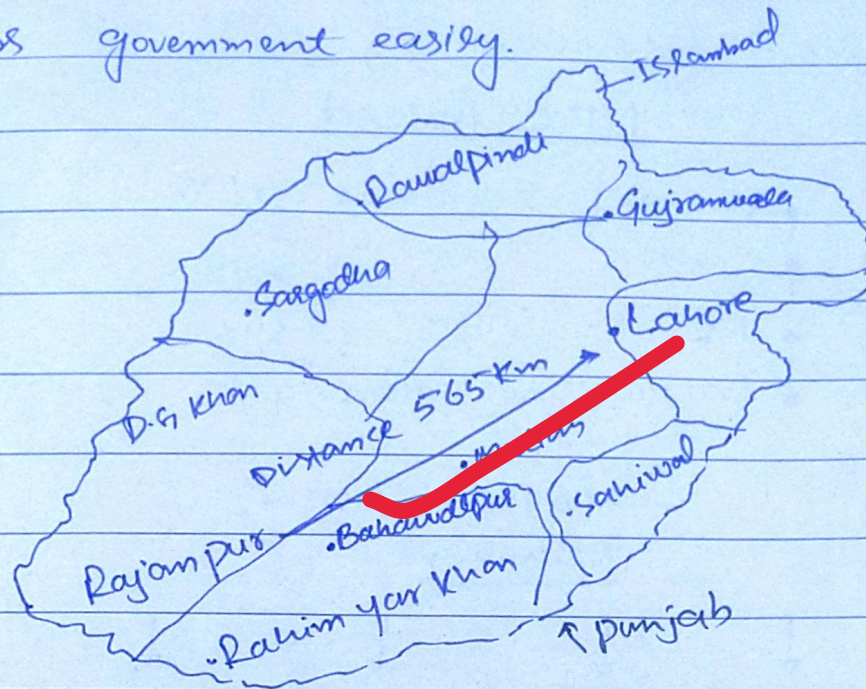 government easily.
Islambad
Rawalpindi
Gujramwala
Sargodha
Lahore
D.G Khan
Distance 565 Km
Sahiwal
Bahawalpur
Rajanpur
Rahim yar Khan
punjab